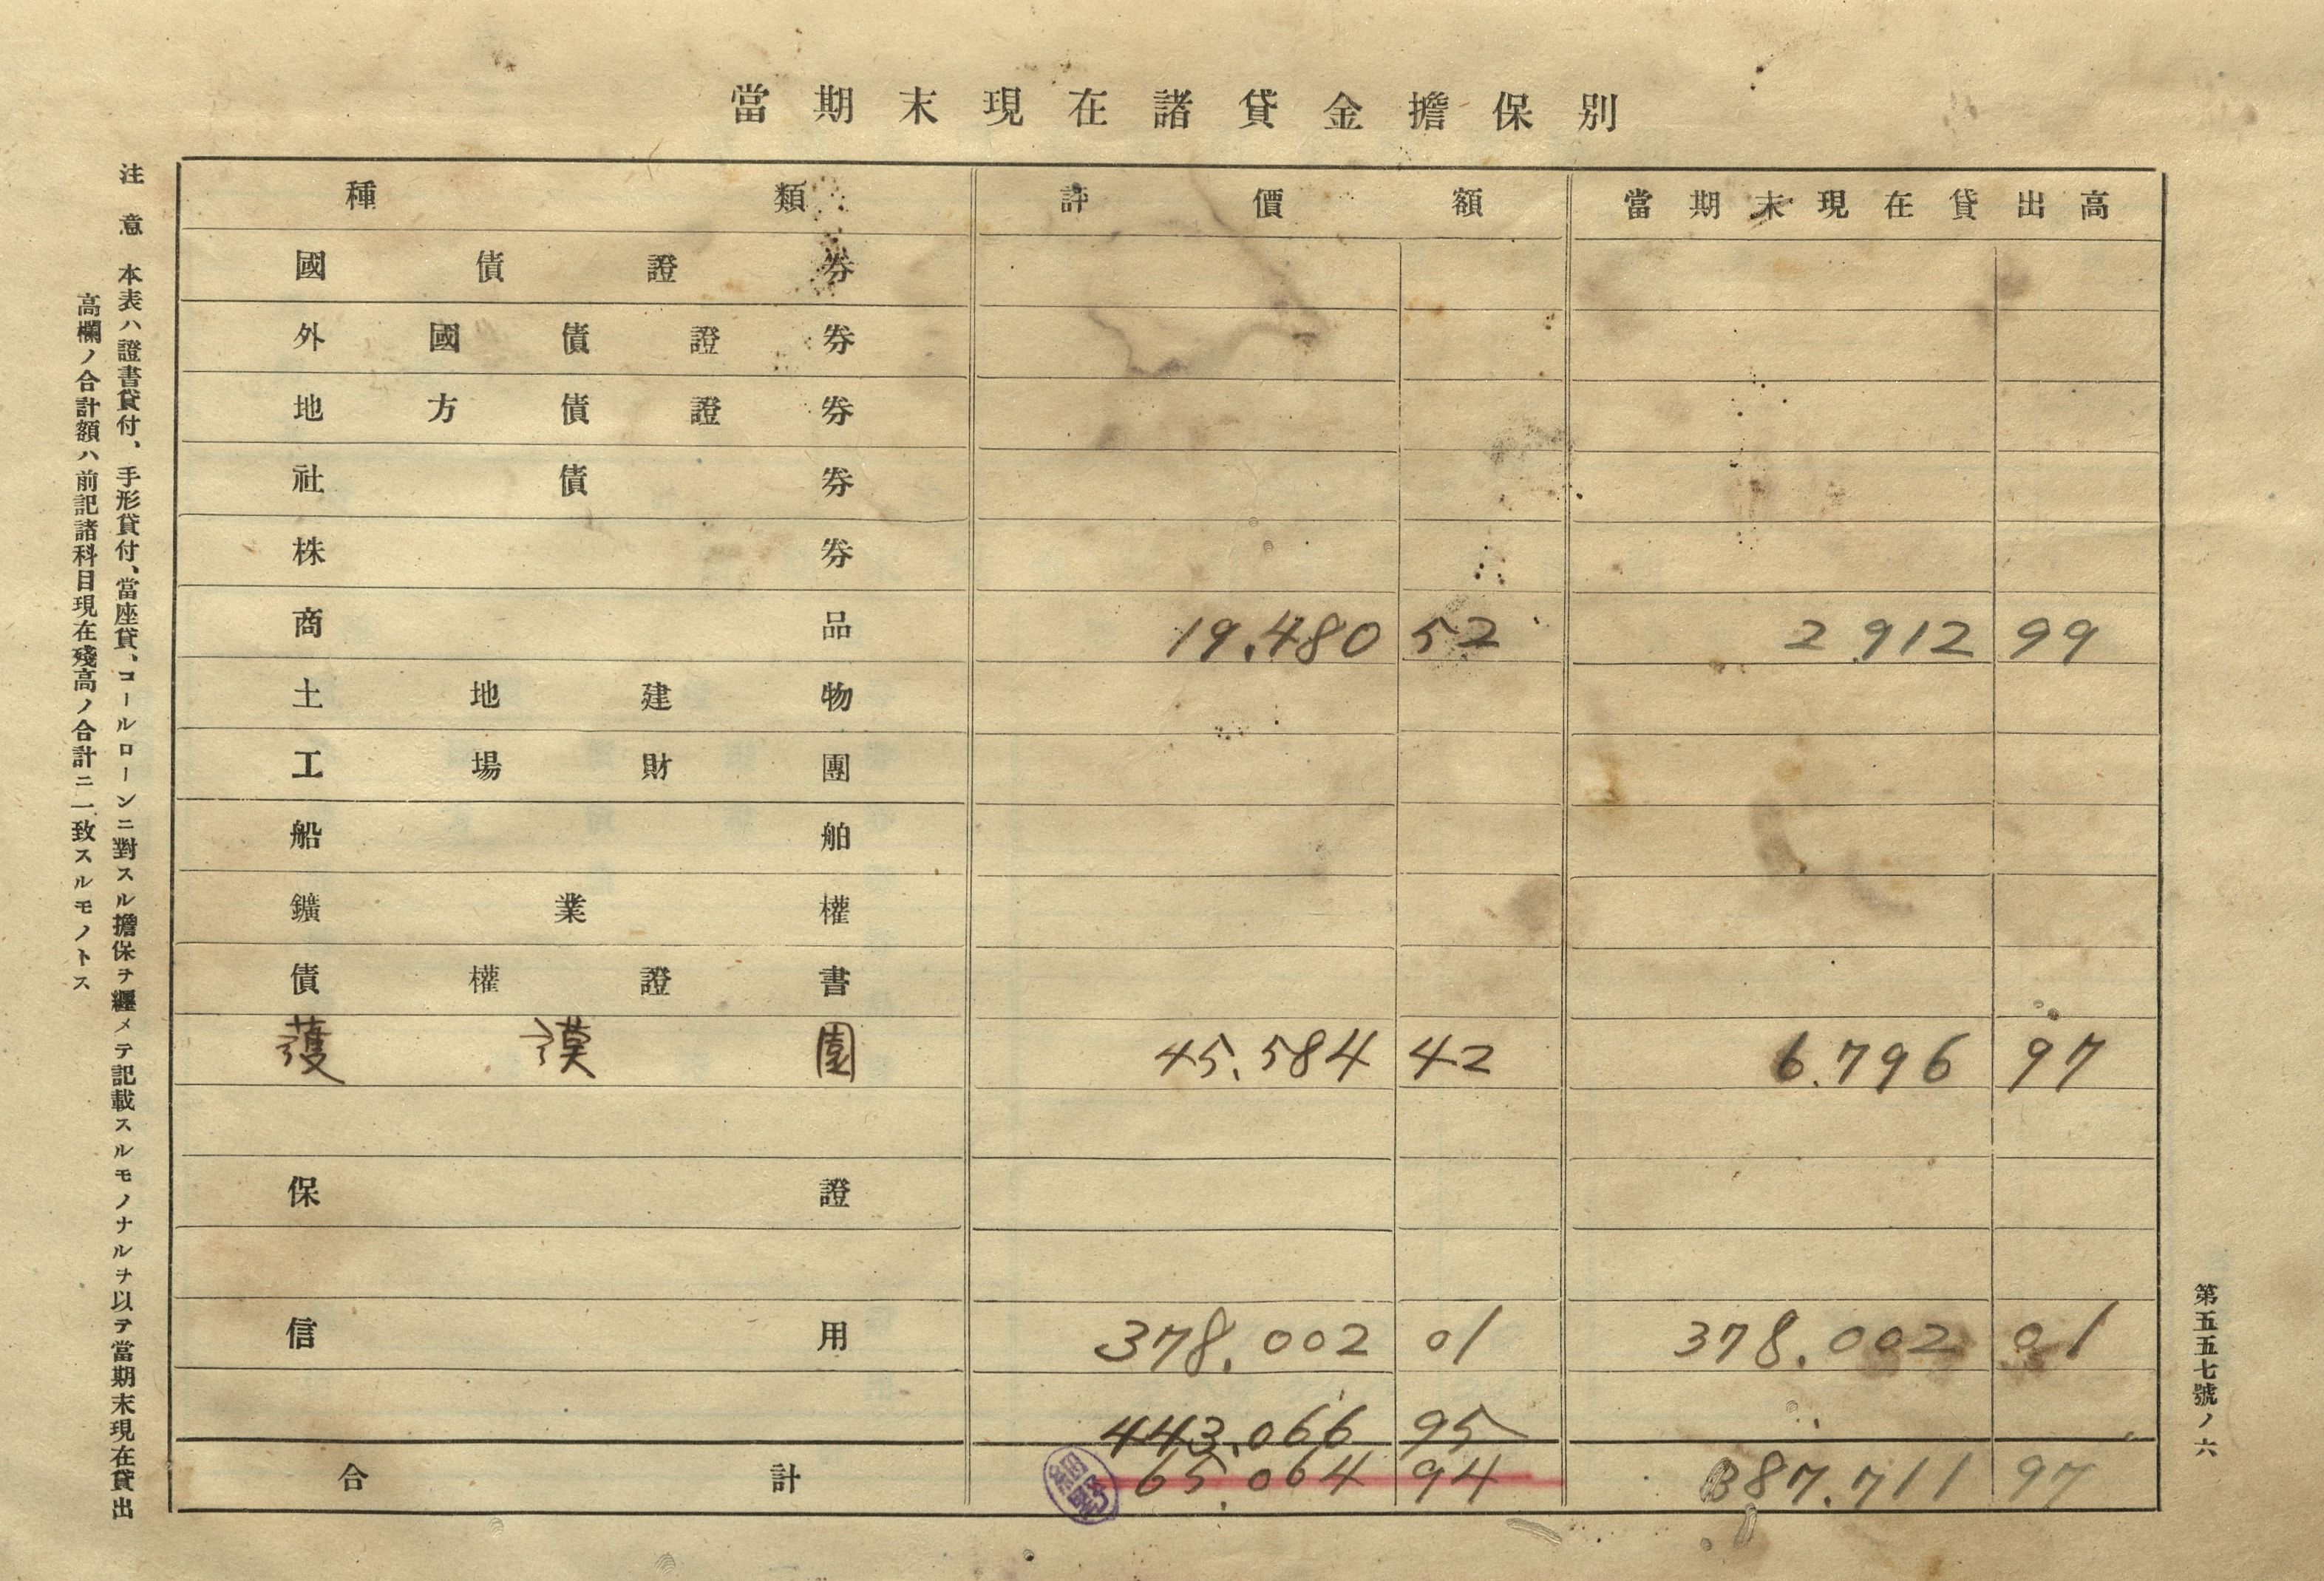 當期末現在諸貸金擔保別
種類 評價額 當期末現在貸出高
國債證券
外國債證券
地方債證券
社債券
株券
商品 19.480 52 2.912 99
土地建物
工場財團
船舶
鑛業權
債權證書
護謨園 45.584 42 6.796 97
保證
信用 378.002 01 378.002 01
443.066 95
合計 65.064 94 387.711 97
細野
注意 本表ハ證書貸付、手形貸付、當座貸、コールローンニ對スル擔保ヲ纒メテ記載スルモノナルヲ以テ當期末現在貸出
高欄ノ合計額ハ前記諸科目現在殘高ノ合計ニ一致スルモノトス
第五五七號ノ六